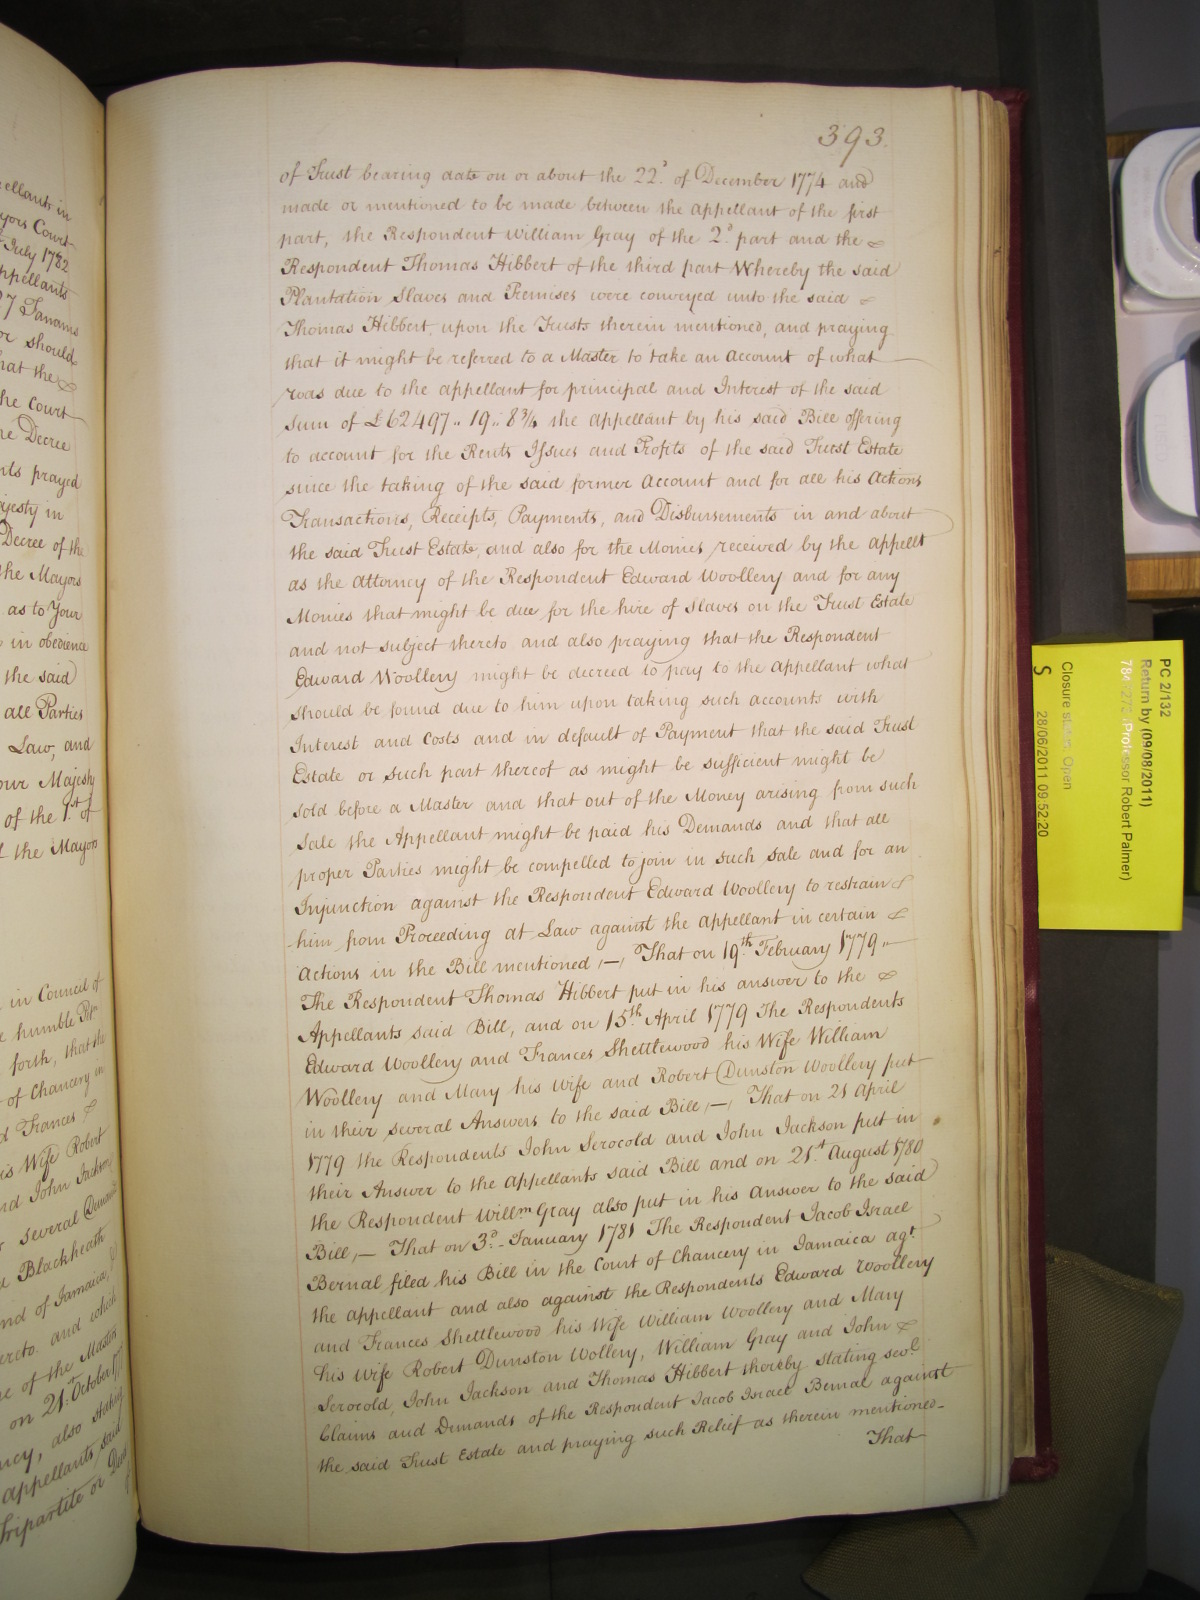 393.
of Trust bearing date on or about the 22d. of December 1774 and
made or mentioned to be made between the appellant of the first
part, the Respondent William Gray of the 2d. part and the
Respondent Thomas Hibbert of the third part Whereby the said
Plantation Slaves and Premises were conveyed unto the said
Thomas Hibbert upon the Trusts therein mentioned, and praying
that it might be referred to a Master to take an Account of what
was due to the appellant for principal and Interest of the said
Sum of £62497.. 19.. 8¾ the appellant by his said Bill offering
to account for the Rents Issues and Profits of the said Trust Estate
since the taking of the said former Account and for all his Actions
Transactions, Receipts, Payments, and Disbursements in and about
the said Trust Estate, and also for the Monies received by the appellt
as the Attorney of the Respondent Edward Woollery and for any
Monies that might be due for the hire of Slaves on the Trust Estate
and not subject thereto and also praying that the Respondent
Edward Woollery might be decreed to pay to the appellant what
should be found due to him upon taking such accounts with
Interest and Costs and in default of Payment that the said Trust
Estate or such part thereof as might be sufficient might be
sold before a Master and that out of the Money arising from such
Sale the Appellant might be paid his Demands and that all
proper Parties might be compelled to join in such sale and for an
Injunction against the Respondent Edward Woollery to restrain
him from Proceeding at Law against the appellant in certain
Actions in the Bill mentioned ,—, That on 19th February 1779,,
The Respondent Thomas Hibbert put in his answer to the
Appellants said Bill, and on 15th. April 1779 The Respondents
Edward Woollery and Frances Shettlewood his Wife William
Woollery and Mary his Wife and Robert Dunston Woollery put
in their several Answers to the said Bill ,—, That on 21 April
1779 the Respondents John Serocold and John Jackson put in
their Answer to the appellants said Bill and on 21st August 1780
the Respondent Willm Gray also put in his answer to the said
Bill ,— That on 3d. January 1781 The Respondent Jacob Israel
Bernal filed his Bill in the Court of Chancery in Jamaica agt.
the appellant and also against the Respondents Edward Woollery
and Frances Shettlewood his Wife William Woollery and Mary
his Wife Robert Dunston Wollery, William Gray and John
Serocold, John Jackson and Thomas Hibbert thereby stating sevl.
Claims and Demands of the Respondent Jacob Israel Bernal against
the said Trust Estate and praying such Relief as therein mentioned
That
ellants in
yors Court
July 1782
ppellants
or should
hat the
he Court
e Decree
nts prayed
ajesty in
Decree of the
the Mayors
as to Your
in obedience
the said
all Parties
Law, and
our Majesty
of the 1st. of
the Mayors
in Council of
humble
forth, that the
of Chancery in
d Frances &
is Wife Robert
nd John Jackson
several
Blackheath
nd of Jamaica,
ereto and which
e of the Master
on 21st October
ncy, also stating
appellants said
Tripartite or Deed
PC 2/132
Return by (09/08/2011)
(Professor Robert Palmer)
Closure status: Open
S
28/06/2011 09:52:20